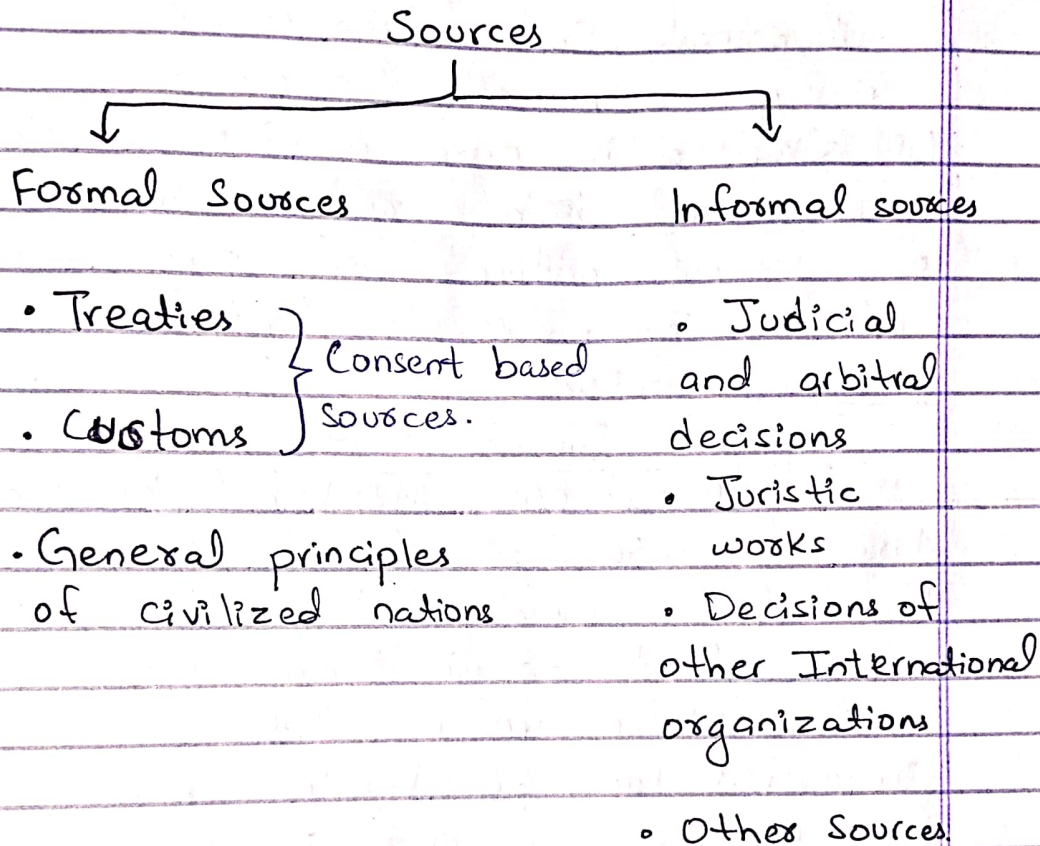 Sources
Formal Sources
• Treaties
• Customs
Consent based
sources.
• General principles
of civilized nations
Informal sources
• Judicial
and arbitral
decisions
• Juristic
works
• Decisions of
other International
organizations
• Other Sources.